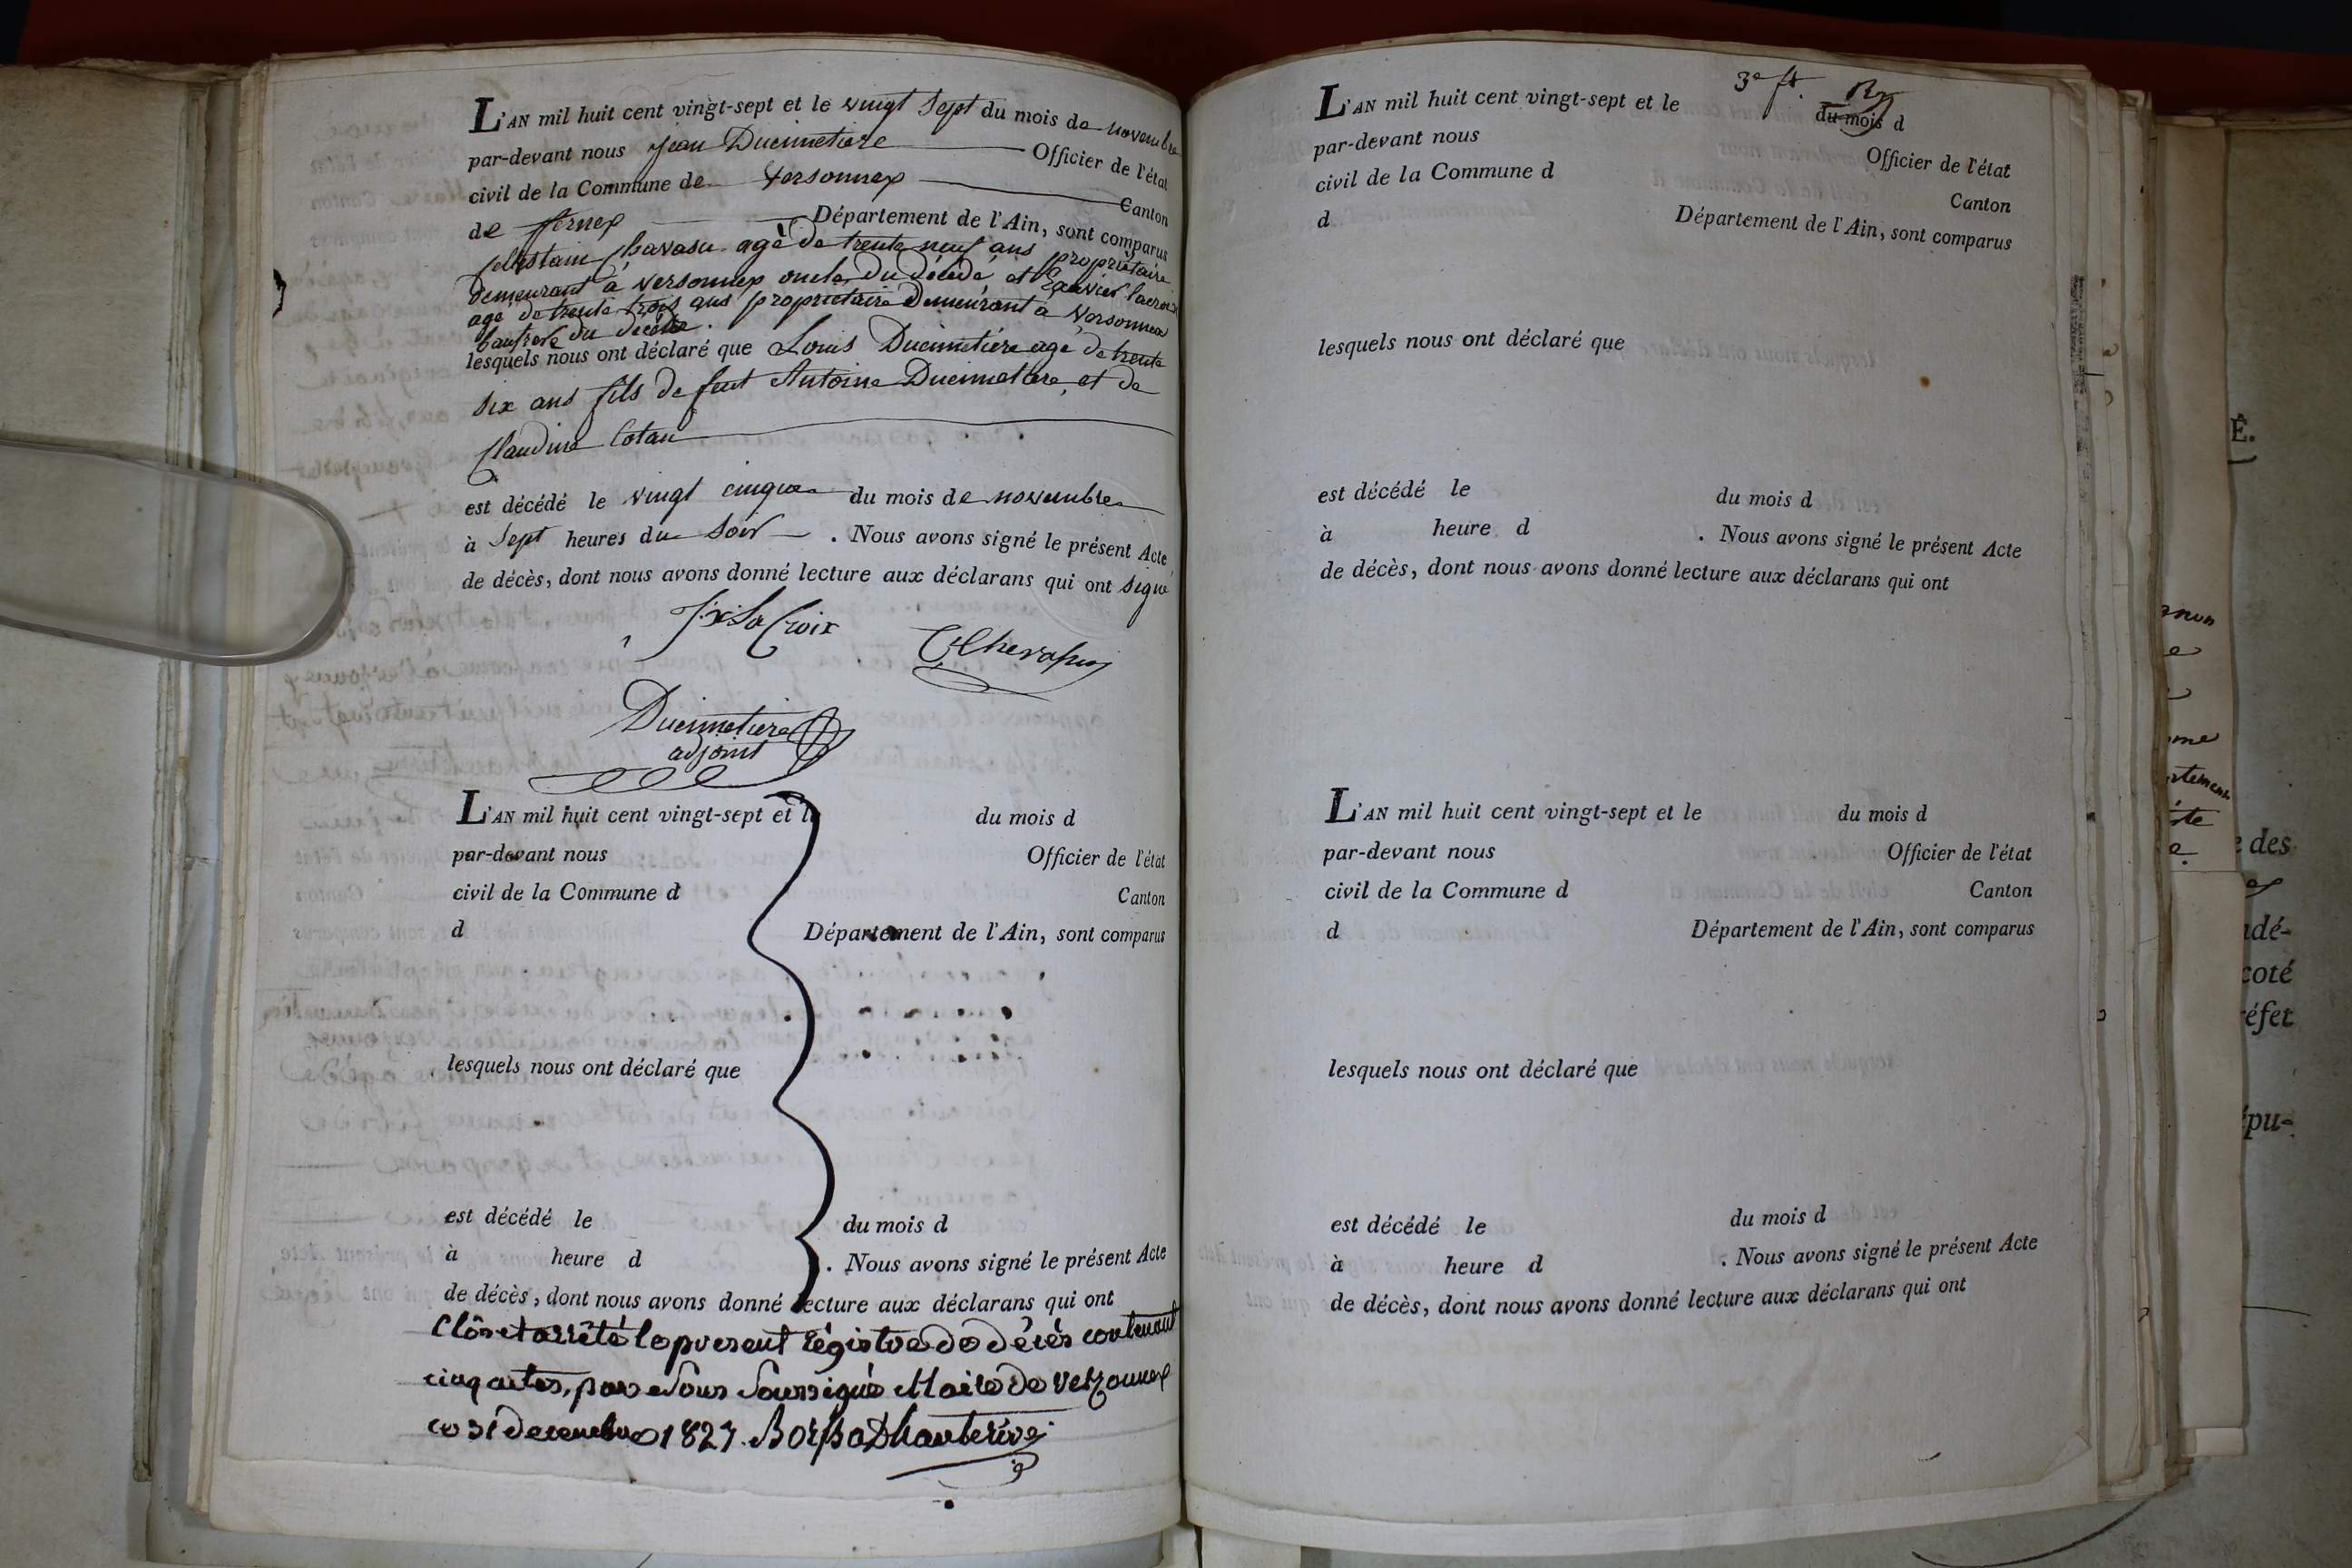 L'AN mil huit cent vingt-sept et le vingt Sept du mois de novembre
par-devant nous jean Ducimetiere Officier de l'état
civil de la Commune de Versonnex Canton
de fernex Département de l'Ain, sont comparus
agé de trente neuf ans propriétaire
demeurant à Versonnex oncle du décédé et Xavier lacroix
agé de trente trois ans propriétaire Demeurant à Versonnex
baufrere du décédé.
lesquels nous ont déclaré que Louis Ducimetiére agé de trente
six ans fils de feut Antoine Ducimetiere et de
Claudine Cotau
est décédé le vingt cinque du mois de novembre
à Sept heures du Soir . Nous avons signé le présent Acte
de décès, dont nous avons donné lecture aux déclarans qui ont signé
fx La Croix
Ducimetiere
adjoint
L'AN mil huit cent vingt-sept et le du mois d
par-devant nous Officier de l'état
civil de la Commune d Canton
d Département de l'Ain, sont comparus
lesquels nous ont déclaré que
est décédé le du mois d
à heure d . Nous avons signé le présent Acte
de décès, dont nous avons donné lecture aux déclarans qui ont
Clôs et arrêté le present régistre de décès contenant
cinq actes, par Nous Soussigné Maire de Verzonnex
ce 31 decembre 1827.
3e ft.
L'AN mil huit cent vingt-sept et le du mois d
par-devant nous Officier de l'état
civil de la Commune d Canton
d Département de l'Ain, sont comparus
lesquels nous ont déclaré que
est décédé le du mois d
à heure d . Nous avons signé le présent Acte
de décès, dont nous avons donné lecture aux déclarans qui ont
L'AN mil huit cent vingt-sept et le du mois d
par-devant nous Officier de l'état
civil de la Commune d Canton
d Département de l'Ain, sont comparus
lesquels nous ont déclaré que
est décédé le du mois d
à heure d . Nous avons signé le présent Acte
de décès, dont nous avons donné lecture aux déclarans qui ont
É.
des
dé-
coté
éfet
pu-